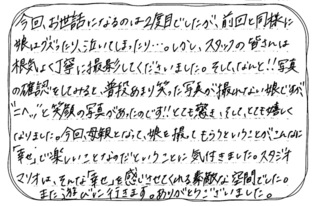 今回、お世話になるのは2度目でしたが、前回と同様に
娘はグズったり、泣いてしまったり…。しかし、スタッフの皆さんは
根気よく丁寧に撮影してくださいました。そして、なんと!!写真
の確認をしてみると、普段あまり笑った写真が撮れない娘でありますが
"ニヘッ"と笑顔の写真があったのです!!とても驚き、そして、とても嬉しく
なりました。今回、母親となって、娘を撮ってもらうということがこんなに
「幸せ」で楽しいことなのだということに気付きました。スタジオ
マリオは、そんな「幸せ」を感じさせてくれる素敵な空間でした。
また遊びに行きます。ありがとうございました。